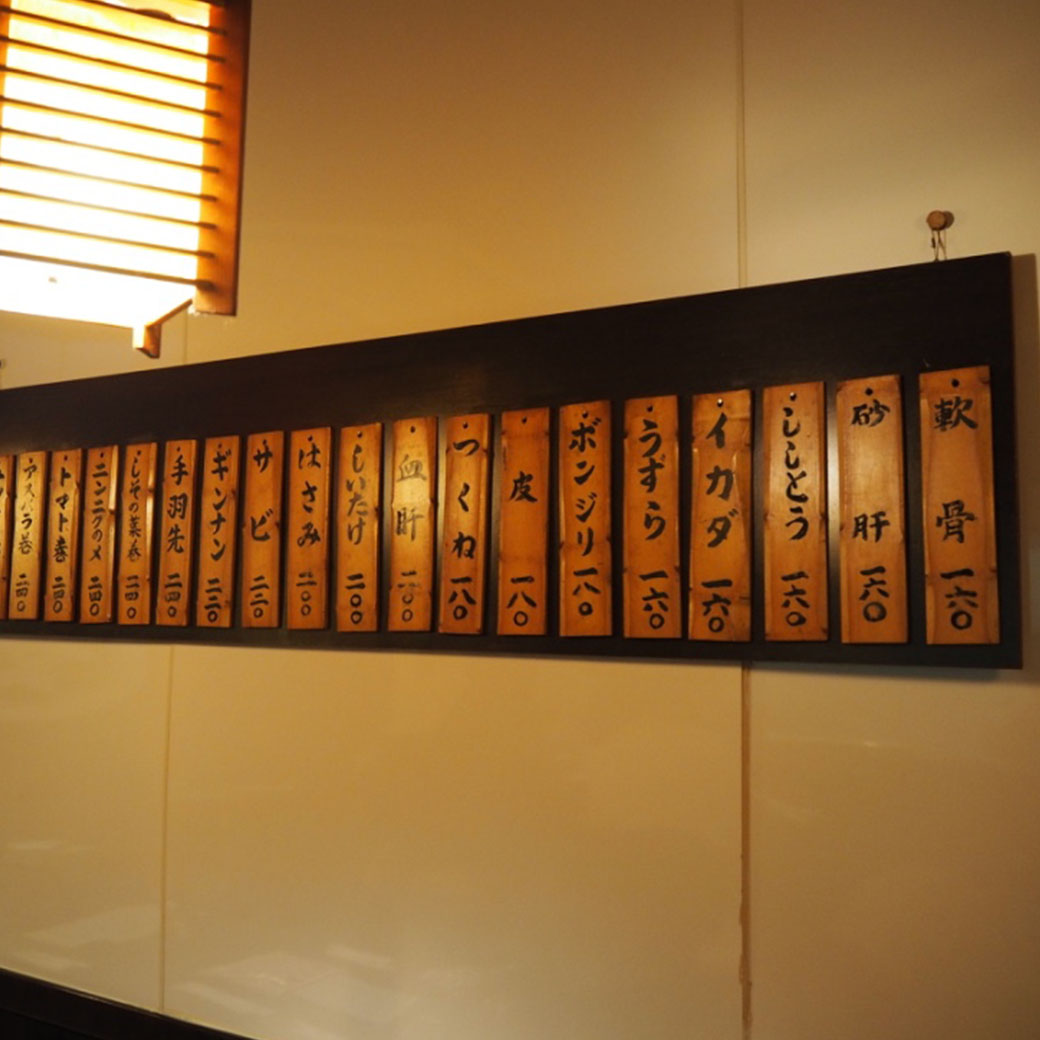 軟骨 一六〇
砂肝 一六〇
ししとう 一六〇
イカダ 一六〇
うずら 一六〇
ボンジリ 一八〇
皮 一八〇
つくね 一八〇
血肝 二〇〇
しいたけ 二〇〇
はさみ 二〇〇
サビ 二三〇
ギンナン 二三〇
手羽先 二四〇
しその葉巻 二四〇
ニンニクのメ 二四〇
トマト巻 二四〇
アスパラ巻 二四〇